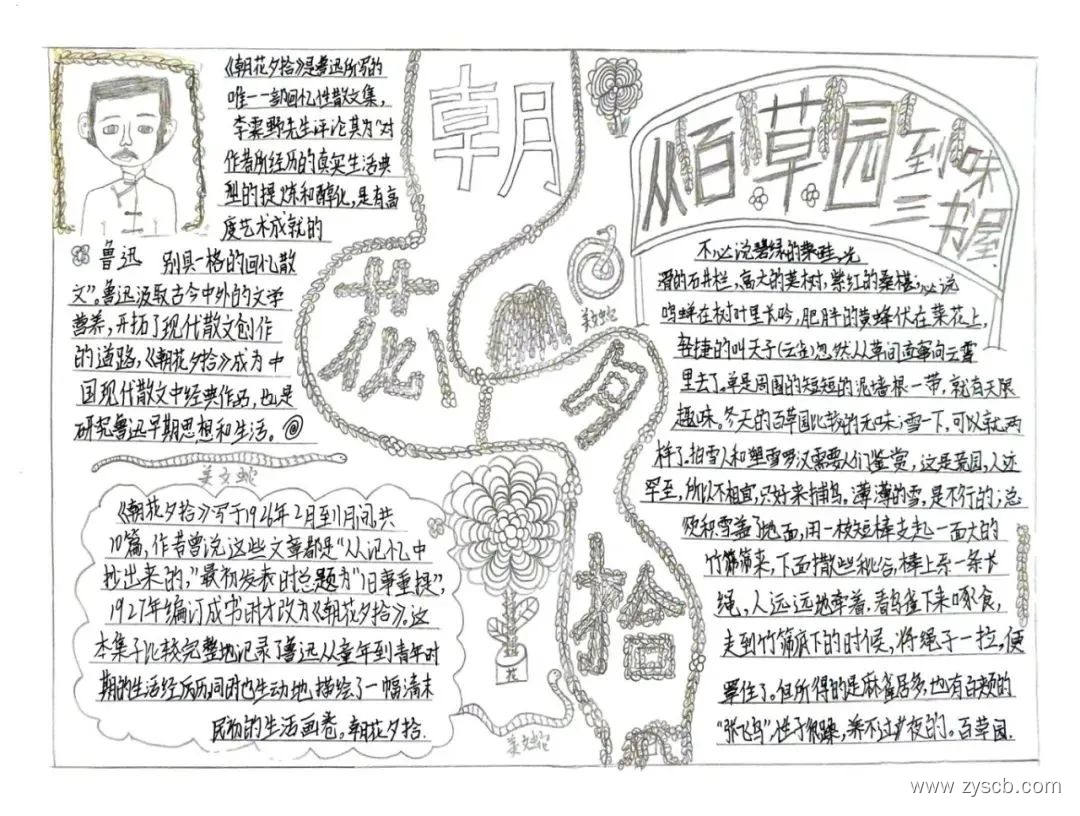 《朝花夕拾》是鲁迅所写的
唯一一部回忆性散文集,
李霁野先生评论其为“对
作者所经历的真实生活典
型的提炼和醇化,是有高
度艺术成就的
鲁迅 别具一格的回忆散
文”。鲁迅汲取古今中外的文学
营养,开拓了现代散文创作
的道路,《朝花夕拾》成为中
国现代散文中经典作品,也是
研究鲁迅早期思想和生活。@
美女蛇
《朝花夕拾》写于1926年2月到11月间,共
10篇,作者曾说这些文章都是“从记忆中
抄出来的,”最初发表时总题为“旧事重提”,
1927年编订成书时才改为《朝花夕拾》。这
本集子比较完整地记录了鲁迅从童年到青年时
期的生活经历历同时也生动地描绘了一幅清末
民初的生活画卷。朝花夕拾.
朝
花
夕
拾
美女蛇
美女蛇
从百草园到三味书屋
不必说碧绿的菜畦,光
滑的石井栏,高大的皂荚树,紫红的桑椹;必说
鸣蝉在树叶里长吟,肥胖的黄蜂伏在菜花上,
轻捷的叫天子(云雀)忽然从草间直窜向云霄
里去了。单是周围的短短的泥墙根一带,就有无限
趣味。冬天的百草园比较的无味;雪一下,可以就两
样了。拍雪人和塑雪罗汉需要人们鉴赏,这是荒园,人迹
罕至,所以不相宜,只好来捕鸟。薄薄的雪,是不行的;总
须积雪盖了地面,用一枝短棒支起一面大的
竹筛来,下面撒些秕谷,棒上系一条长
绳,人远远地牵着,看鸟雀下来啄食,
走到竹筛底下的时候,将绳子一拉,便
罩住了。但所得的是麻雀居多,也有白颊的
“张飞鸟”,性子很躁,养不过夜的。百草园.
www.zyscb.com